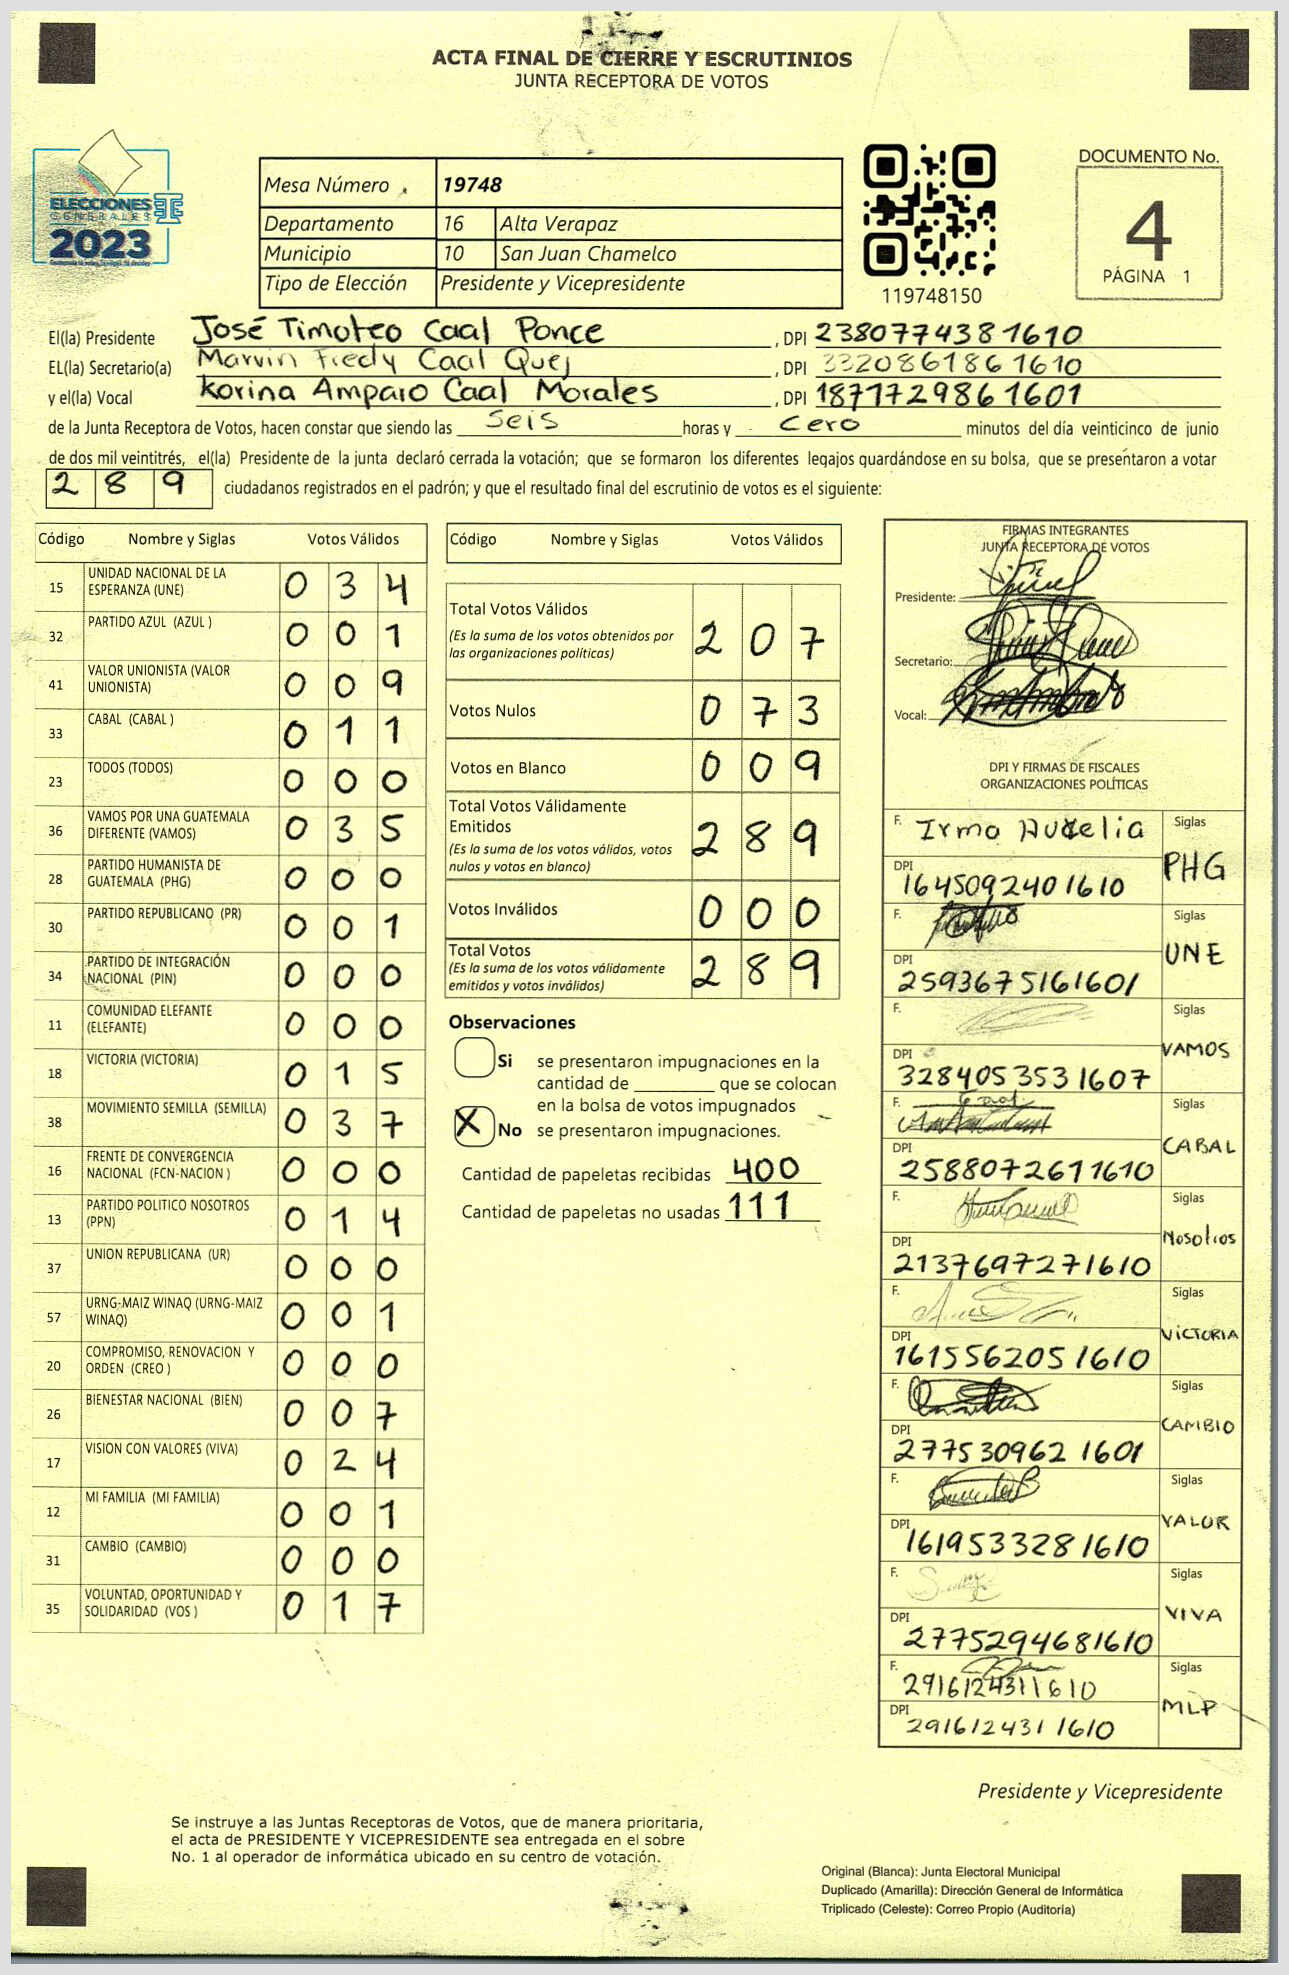 ACTA FINAL DE CIERRE Y ESCRUTINIOS
JUNTA RECEPTORA DE VOTOS
ELECCIONES
GENERALES
2023
Mesa Número 19748
Departamento 16 Alta Verapaz
Municipio 10 San Juan Chamelco
Tipo de Elección Presidente y Vicepresidente
119748150
DOCUMENTO No.
4
PÁGINA 1
El(la) Presidente José Timoteo Caal Ponce , DPI 2380774381610
EL(la) Secretario(a) Marvin Fredy Caal Quej , DPI 3320861861610
y el(la) Vocal Korina Amparo Caal Morales , DPI 1871729861601
de la Junta Receptora de Votos, hacen constar que siendo las Seis horas y Cero minutos del día veinticinco de junio
de dos mil veintitrés, el(la) Presidente de la junta declaró cerrada la votación; que se formaron los diferentes legajos guardándose en su bolsa, que se presentaron a votar
289 ciudadanos registrados en el padrón; y que el resultado final del escrutinio de votos es el siguiente:
Código Nombre y Siglas Votos Válidos
15 UNIDAD NACIONAL DE LA ESPERANZA (UNE) 034
32 PARTIDO AZUL (AZUL ) 001
41 VALOR UNIONISTA (VALOR UNIONISTA) 009
33 CABAL (CABAL ) 011
23 TODOS (TODOS) 000
36 VAMOS POR UNA GUATEMALA DIFERENTE (VAMOS) 035
28 PARTIDO HUMANISTA DE GUATEMALA (PHG) 000
30 PARTIDO REPUBLICANO (PR) 001
34 PARTIDO DE INTEGRACIÓN NACIONAL (PIN) 000
11 COMUNIDAD ELEFANTE (ELEFANTE) 000
18 VICTORIA (VICTORIA) 015
38 MOVIMIENTO SEMILLA (SEMILLA) 037
16 FRENTE DE CONVERGENCIA NACIONAL (FCN-NACION ) 000
13 PARTIDO POLITICO NOSOTROS (PPN) 014
37 UNION REPUBLICANA (UR) 000
57 URNG-MAIZ WINAQ (URNG-MAIZ WINAQ) 001
20 COMPROMISO, RENOVACION Y ORDEN (CREO ) 000
26 BIENESTAR NACIONAL (BIEN) 007
17 VISION CON VALORES (VIVA) 024
12 MI FAMILIA (MI FAMILIA) 001
31 CAMBIO (CAMBIO) 000
35 VOLUNTAD, OPORTUNIDAD Y SOLIDARIDAD (VOS ) 017
Código Nombre y Siglas Votos Válidos
Total Votos Válidos 207
(Es la suma de los votos obtenidos por
las organizaciones políticas)
Votos Nulos 073
Votos en Blanco 009
Total Votos Válidamente
Emitidos 289
(Es la suma de los votos válidos, votos
nulos y votos en blanco)
Votos Inválidos 000
Total Votos 289
(Es la suma de los votos válidamente
emitidos y votos inválidos)
Observaciones
Si se presentaron impugnaciones en la
cantidad de ________ que se colocan
en la bolsa de votos impugnados
X No se presentaron impugnaciones.
Cantidad de papeletas recibidas 400
Cantidad de papeletas no usadas 111
FIRMAS INTEGRANTES
JUNTA RECEPTORA DE VOTOS
Presidente:
Secretario:
Vocal:
DPI Y FIRMAS DE FISCALES
ORGANIZACIONES POLÍTICAS
F. Irma Aurelia Siglas
DPI 1645092401610 PHG
F. Siglas
DPI 2593675161601 UNE
F. Siglas
DPI 3284053531607 VAMOS
F. Caal Siglas
DPI 2588072611610 CABAL
F. Siglas
DPI 2137697271610 Nosotros
F. Siglas
DPI 1615562051610 VICTORIA
F. Siglas
DPI 2775309621601 CAMBIO
F. Siglas
DPI 1619533281610 VALOR
F. Siglas
DPI 2775294681610 VIVA
F. 2916124311610 Siglas
DPI 2916124311610 MLP
Presidente y Vicepresidente
Se instruye a las Juntas Receptoras de Votos, que de manera prioritaria,
el acta de PRESIDENTE Y VICEPRESIDENTE sea entregada en el sobre
No. 1 al operador de informática ubicado en su centro de votación.
Original (Blanca): Junta Electoral Municipal
Duplicado (Amarilla): Dirección General de Informática
Triplicado (Celeste): Correo Propio (Auditoría)